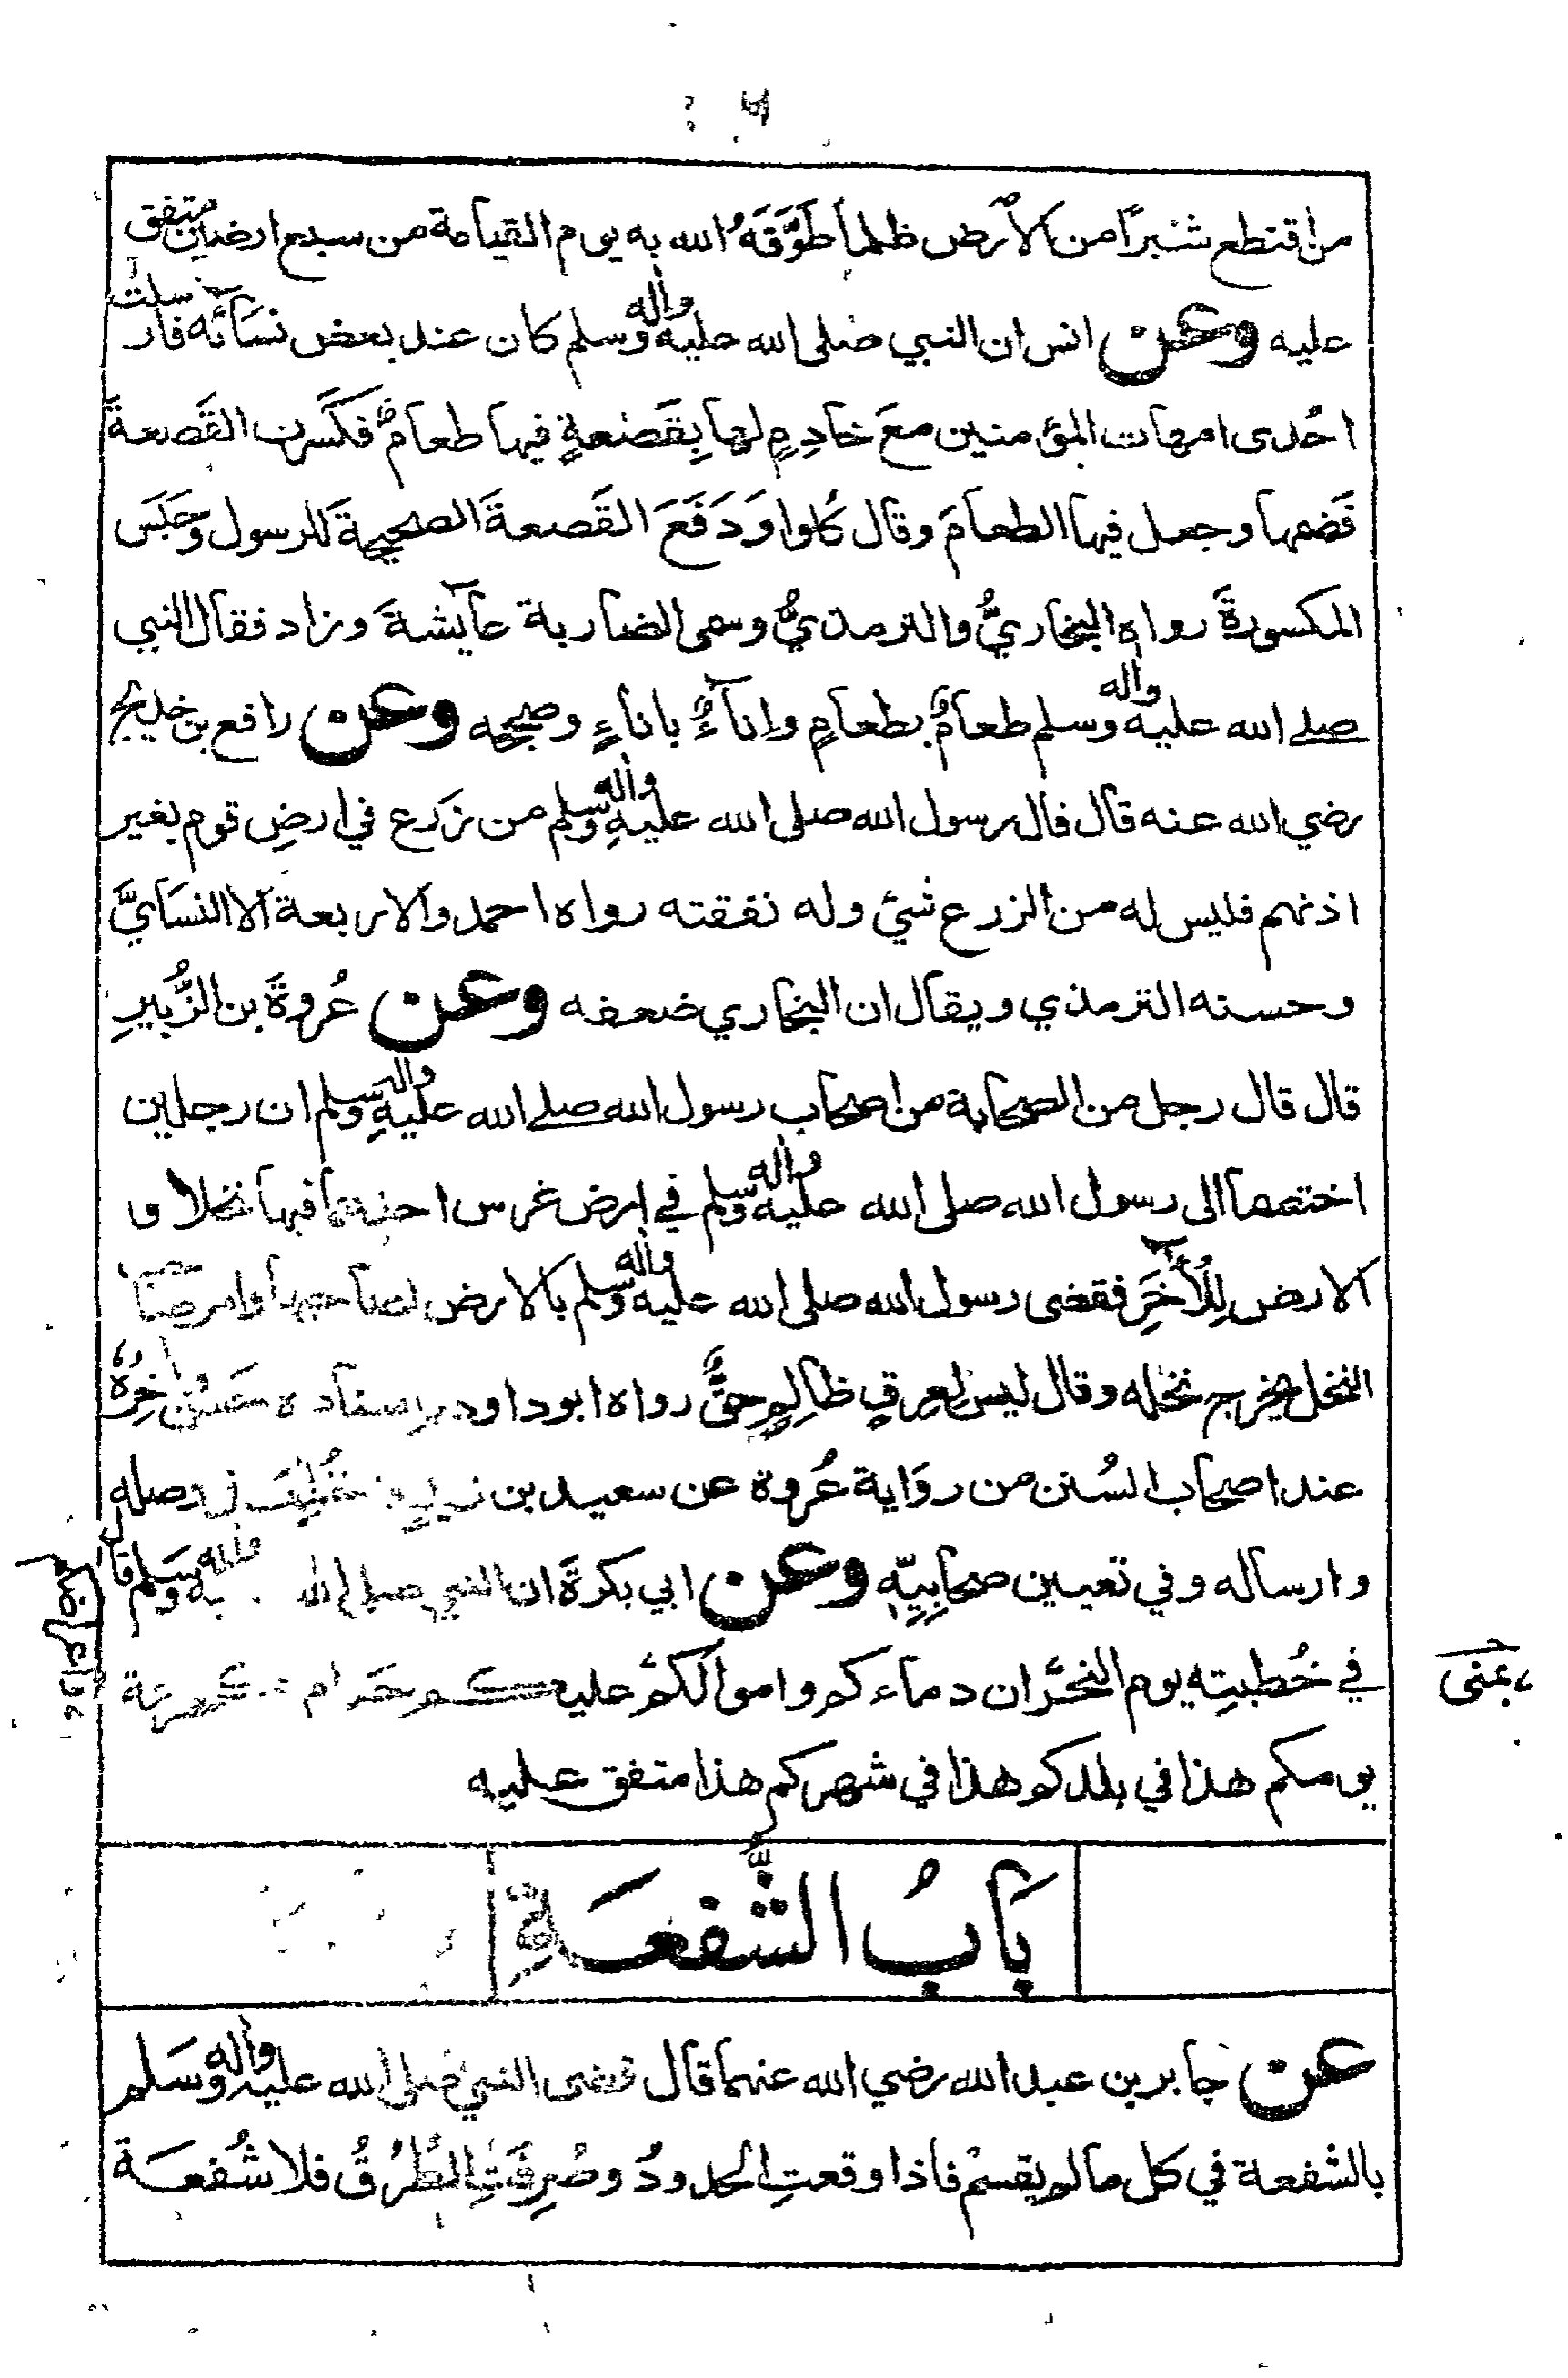 من اقتطع شبرًا من الأرض ظلما طَوَّقَهُ الله به يوم القيامة من سبع ارضين متفق
عليه وعن انس ان النبي صلى الله عليه وآله وسلم كان عند بعض نسآئه فارسلت
احدى امهات المؤمنين معَ خادِمٍ لها بِقَصْعةٍ فيها طعامٌ فكَسَرت القَصعةَ
فَضمها وجعل فيها الطعامَ وقال كُلوا وَدَفَعَ القَصعةَ الصحيحةَ للرسول وحَبَسَ
المكسورةَ رواه البخاريُّ والترمذيُّ وسمى الضاربة عآيشةَ وزاد فقال النبي
صلے الله عليه وآله وسلم طعامٌ بطعامٍ وإنآءٌ باناءٍ وصححه وعن رافع بن خديج
رضي الله عنه قال قال رسول الله صلى الله عليهِ وآله وسلم من زَرَع في ارضِ قوم بغير
اذنهم فليس له من الزرع شيئ وله نفقته رواه احمد والاربعة الا النسَايَّ
وحسنه الترمذي ويقال ان البخاري ضعفه وعن عُروةَ بن الزُّبيرِ
قال قال رجل من الصحابة من اصحاب رسول الله صلے الله عليهِ وآله وسلم ان رجلين
اختصما الى رسول الله صلى الله عليه وآله وسلم في ارض غرس احدهما فيها نخلا و
الارض لِلْآخَرِ فقضى رسول الله صلى الله عليه وآله وسلم بالارض لصاحبها وامر صاحب
النخل يخرج نخله وقال ليس لعِرقٍ ظالِمٍ حقٌّ رواه ابو داود واسناده حسن وآخِرُهُ
عند اصحاب السُنن من روَاية عُروة عن سعيد بن زيدٍ واختُلِفَ في وصله
وارساله وفي تعيين صحابِيِّهٖ وعن ابي بكرةَ ان النبي صلى الله عليه وآله وسَلم قال
في خُطبتِه يوم النحَّر ان دماءكم واموالكمْ عليكم حَرام كحرمة
بمنى
يومكم هذا في بلدكم هذا في شهركم هذا متفق عليه
بَابُ الشُّفعَةِ
عن جابر بن عبد الله رضي الله عنهما قال قضى النبي صلى الله عليه وآله وسَلم
بالشفعة في كل ما لم يقسمْ فاذا وقعتِ الحدودُ وصُرِفَتِ الطُرُقُ فلا شُفعَة